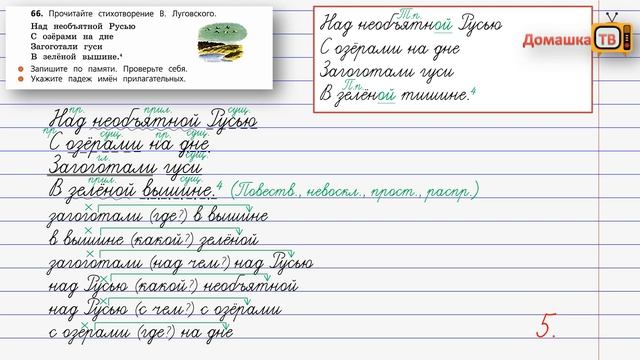 66. Прочитайте стихотворение В. Луговского.
Над необъятной Русью
С озёрами на дне
Загоготали гуси
В зелёной вышине.⁴
Запишите по памяти. Проверьте себя.
Укажите падеж имён прилагательных.
Т.п.
Над необъятной Русью
С озёрами на дне
Загоготали гуси
П.п.
В зелёной тишине.⁴
Домашка ТВ
пр. прил. сущ.
Над необъятной Русью
пр. сущ. пр. сущ.
С озёрами на дне
гл. сущ.
Загоготали гуси
прил. сущ.
В зелёной вышине.⁴ (Повеств., невоскл., прост., распр.)
загоготали (где?) в вышине
в вышине (какой?) зелёной
загоготали (над чем?) над Русью
над Русью (какой?) необъятной
над Русью (с чем?) с озёрами
с озёрами (где?) на дне
5.